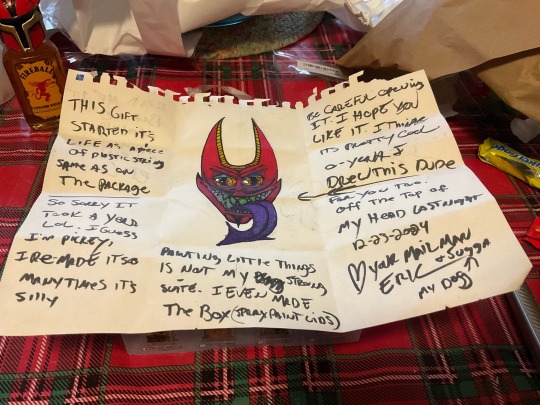 THIS GIFT
STARTED IT'S
LIFE AS A PIECE
OF PLASTIC STRING
SAME AS ON
THE PACKAGE
SO SORRY IT
TOOK A YEAR
LOL. I GUESS
I'M PICKEY,
I RE-MADE IT SO
MANY TIMES IT'S
SILLY
PAINTING LITTLE THINGS
IS NOT MY STRONG
SUTE. I EVEN MADE
THE BOX (SPRAY PAINT LIDS)
BE CAREFUL OPENING
IT. I HOPE YOU
LIKE IT. I THINK
IT'S PRETTY COOL
O-YEAH I
DREW THIS DUDE
FOR YOU TOO.
OFF THE TOP OF
MY HEAD LAST NIGHT
12-23-2024
YOUR MAILMAN
ERIC + SUGGA
MY DOG
FIREBALL